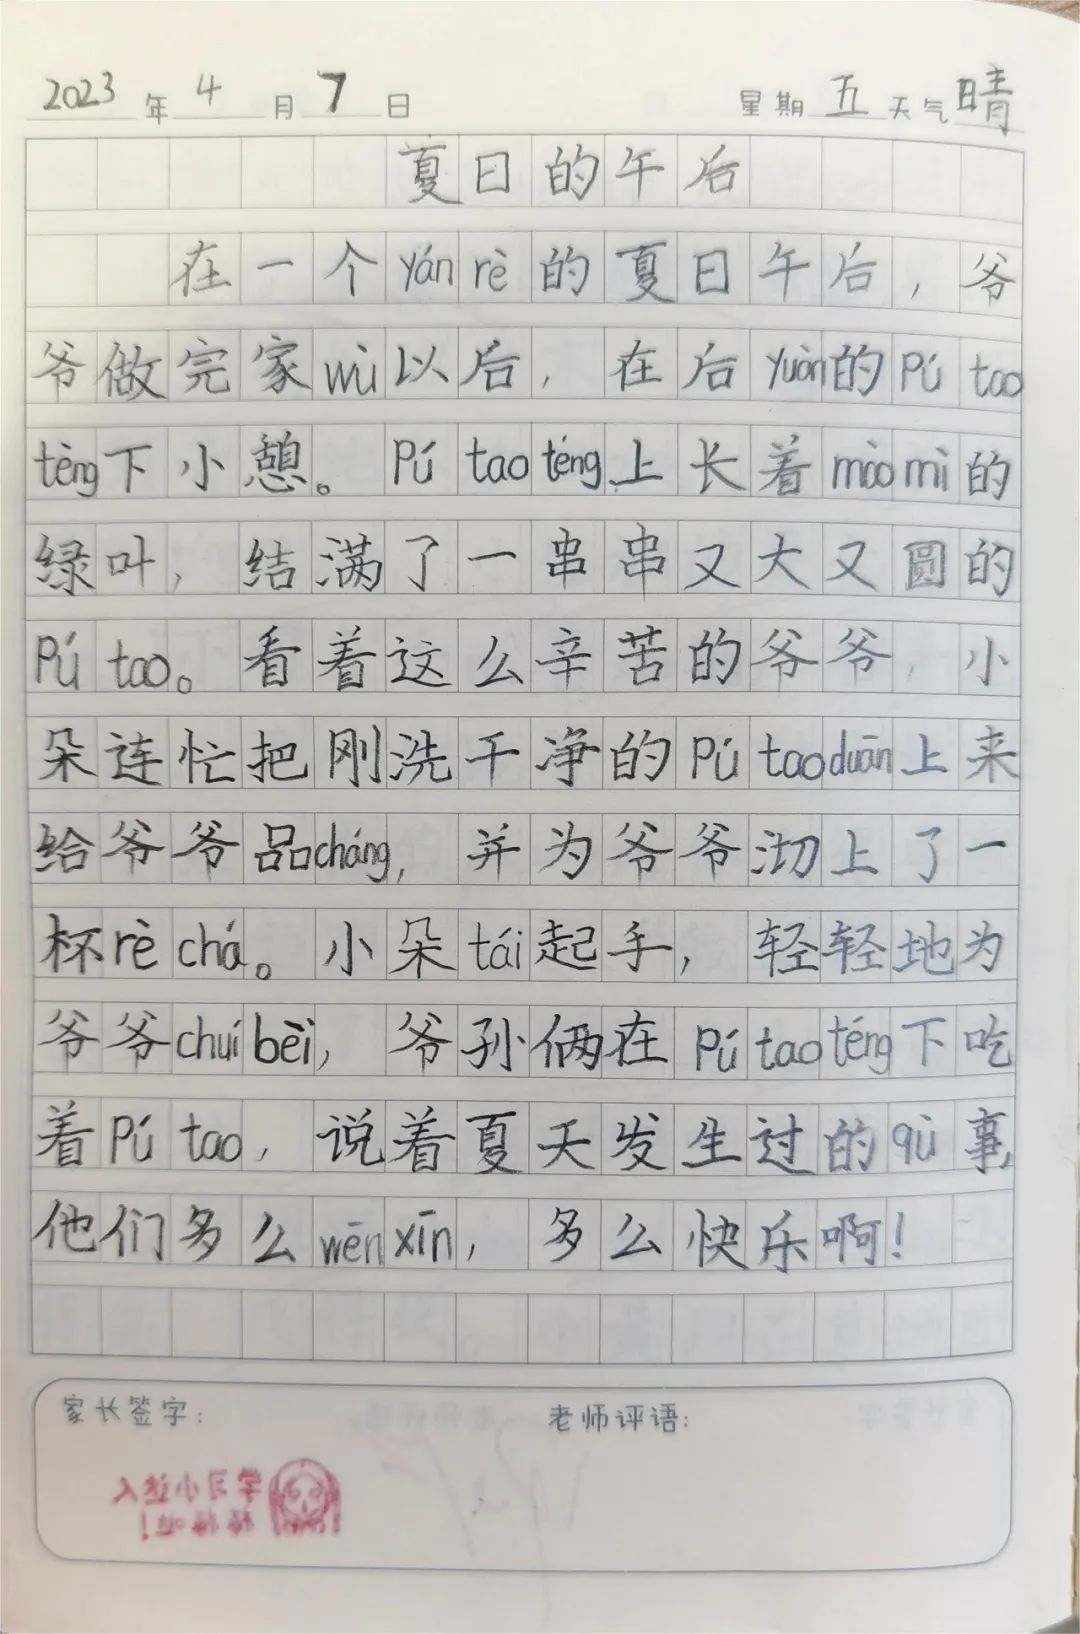 2023年4月7日 星期五天气晴
夏日的午后
在一个yán rè的夏日午后，爷
爷做完家wù以后，在后yuàn的Pú tao
tèng下小憩。Pú tao téng上长着mào mì的
绿叶，结满了一串串又大又圆的
Pú tao。看着这么辛苦的爷爷，小
朵连忙把刚洗干净的Pú tao duān上来
给爷爷品cháng，并为爷爷沏上了一
杯rè chá。小朵tái起手，轻轻地为
爷爷chuí bèi，爷孙俩在Pú tao téng下吃
着Pú tao，说着夏天发生过的qù事
他们多么wēn xīn，多么快乐啊！
家长签字： 老师评语：
学习小达人
棒棒哒！